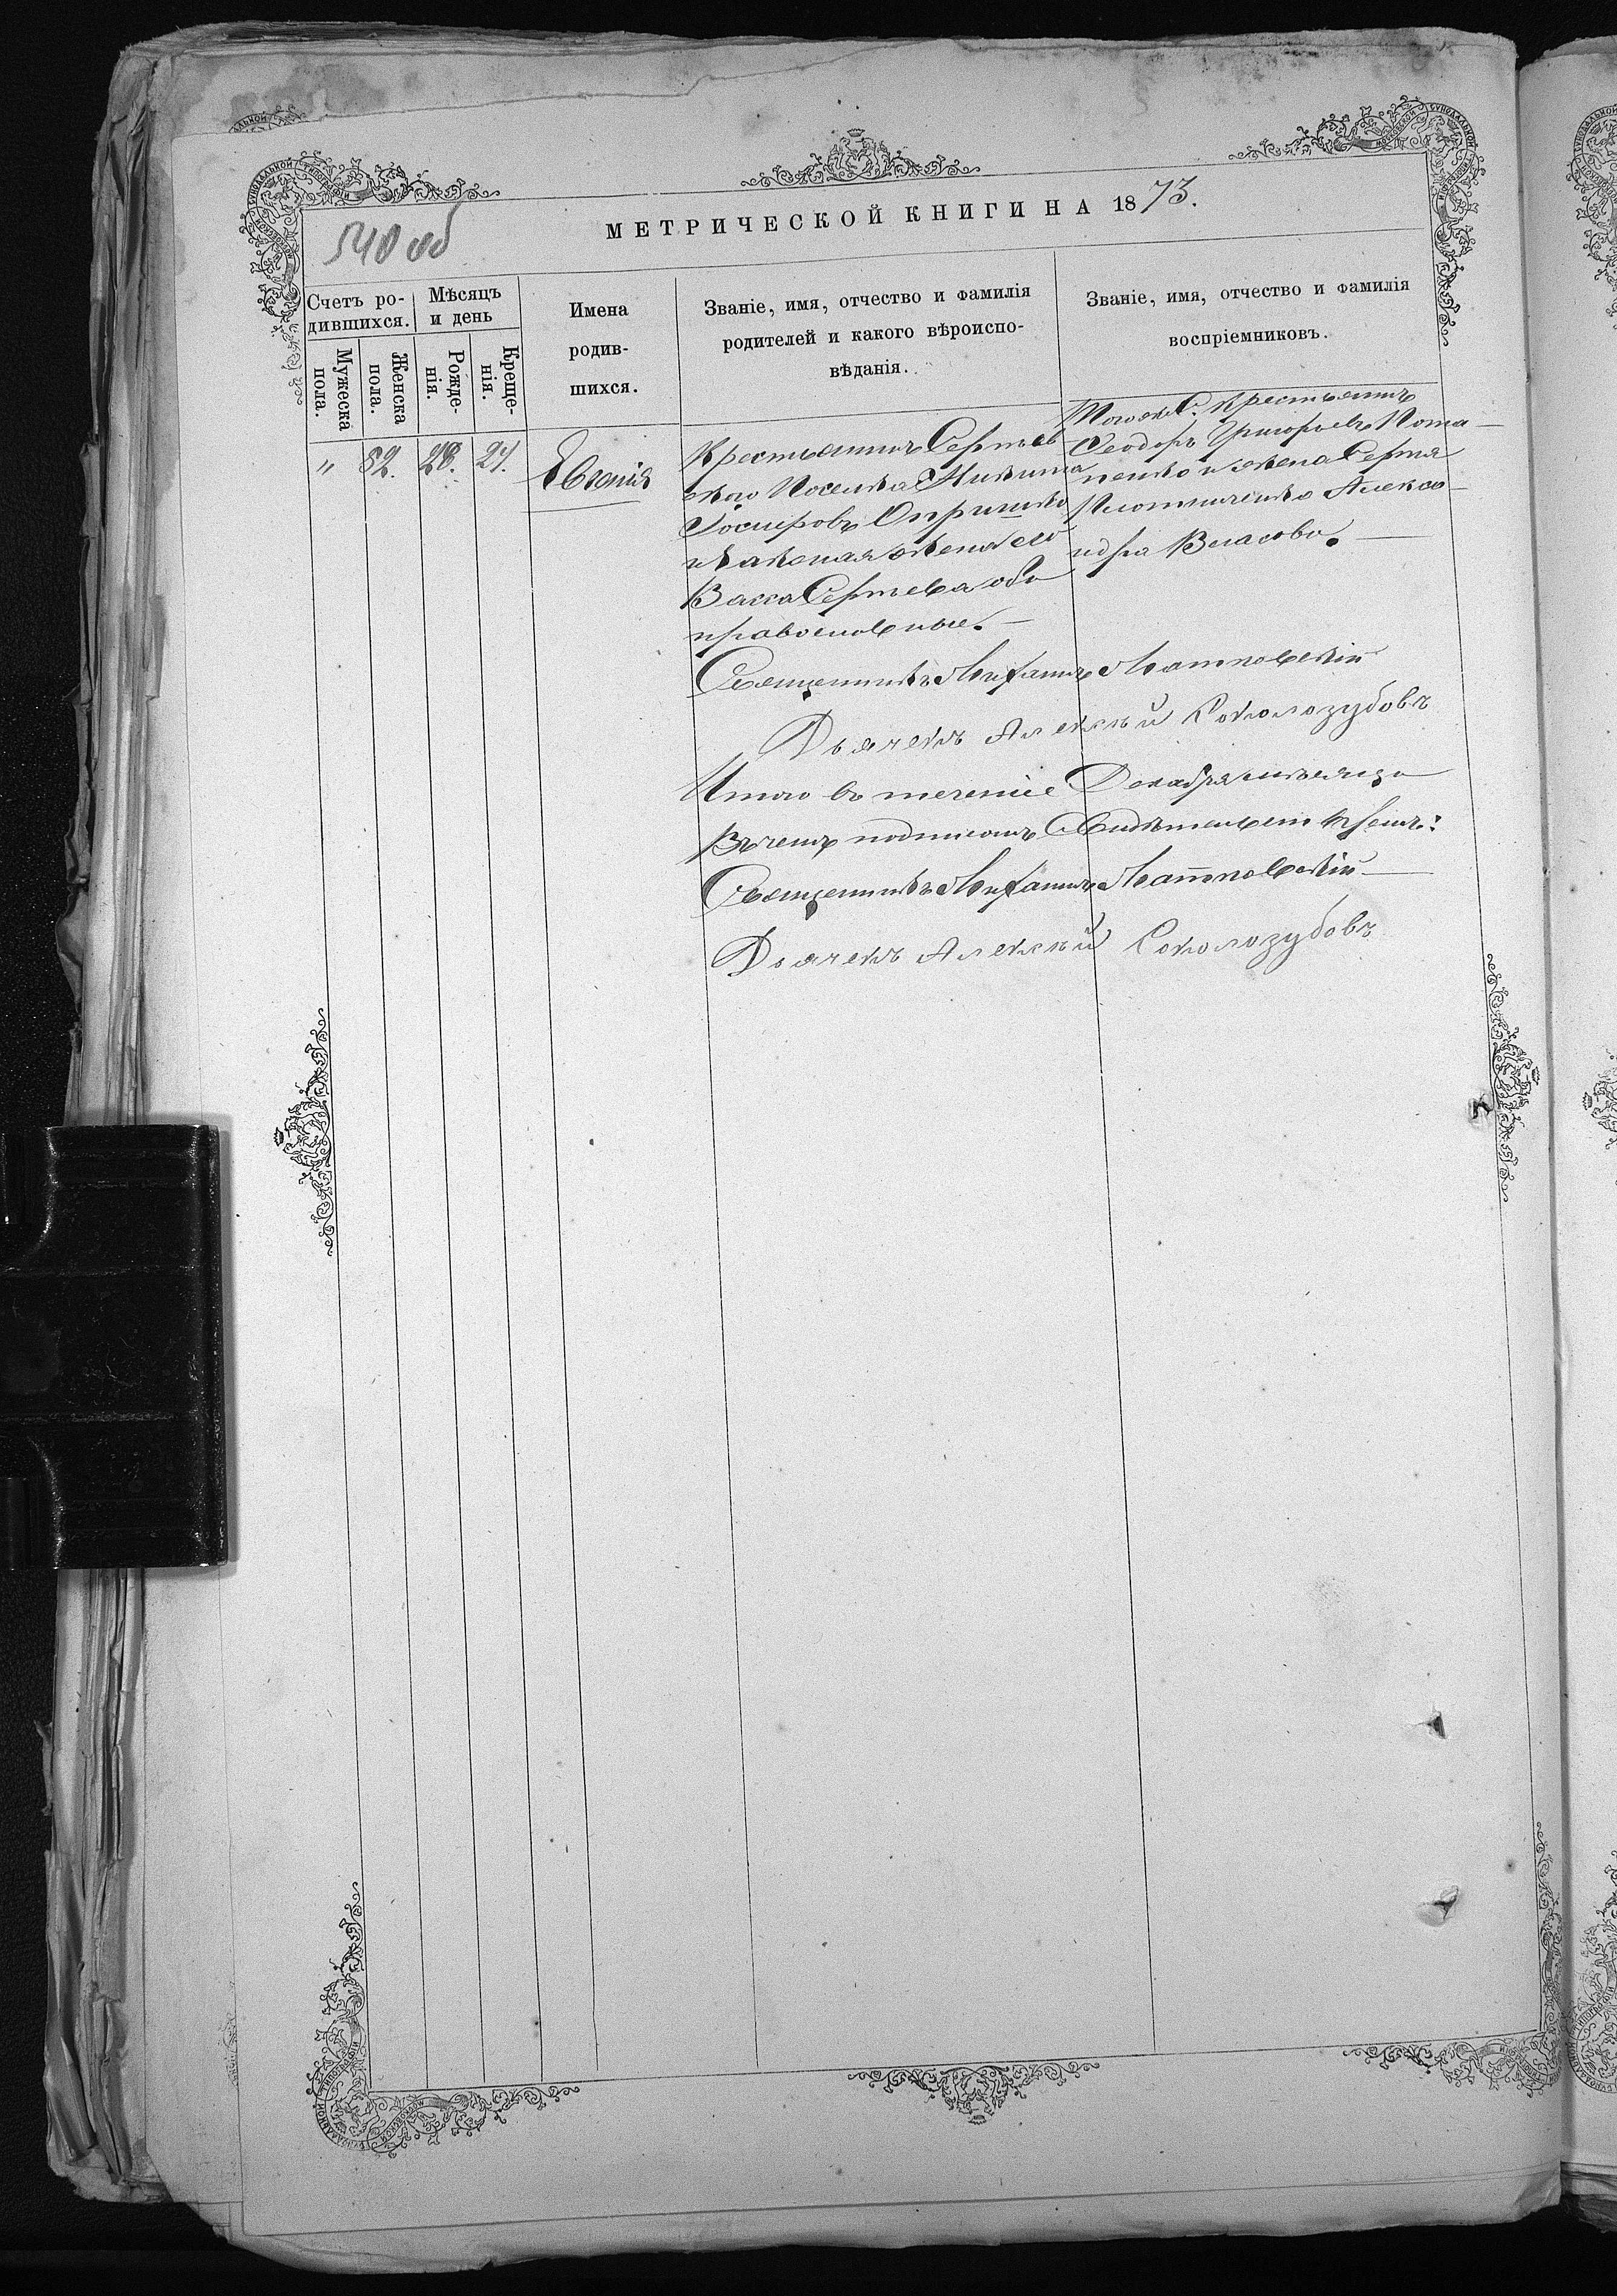 540 об
МЕТРИЧЕСКОЙ КНИГИ НА 1873.
Счетъ ро-
дившихся.
Мѣсяцъ
и день
Мужеска
пола.
Женска
пола.
Рожде-
нія.
Креще-
нія.
Имена
родив-
шихся.
Званіе, имя, отчество и фамилія
родителей и какого вѣроиспо-
вѣданія.
Званіе, имя, отчество и фамилія
воспріемниковъ.
" 82. 28.
Евгенія
Крестьянинъ Сергіев
скаго Поселка Никита
Опришко
и законая жена его
Васса Сергіева оба
православные.
Тогоже С. Крестьянинъ
Феодоръ Григорьевъ Пота-
пенко и жена Сергія
Плотниченко Алекса-
ндра Власова.
Священникъ Лятковскій
Дьячекъ Алексѣй Соколозубовъ
Итого въ теченіе Декабря мѣсяца
Въ чемъ подписомъ Свидѣтельствуемъ:
Священникъ Лятковскій
Дьячекъ Алексѣй Соколозубовъ